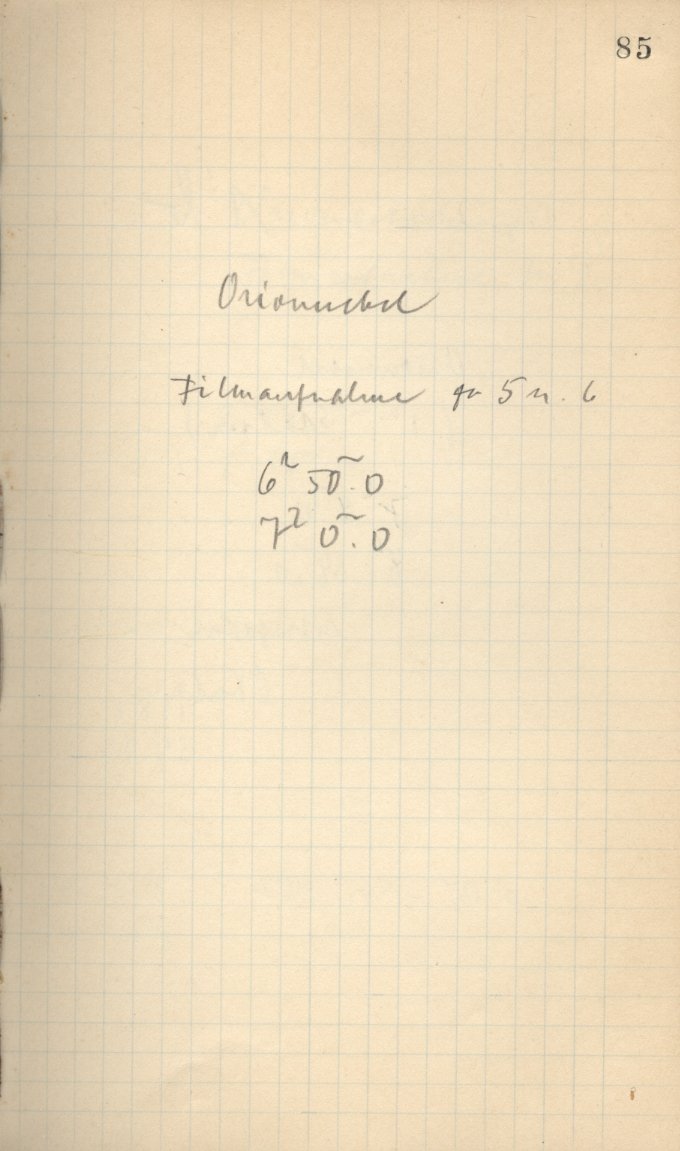 85
Orionnebel
Filmaufnahme 5 u. 6
6ʰ 50ᵐ.0
7ʰ 0ᵐ.0